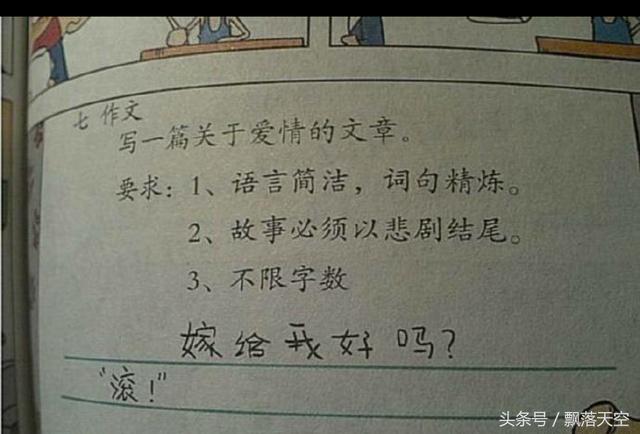 七 作文
写一篇关于爱情的文章。
要求：1、语言简洁，词句精炼。
2、故事必须以悲剧结尾。
3、不限字数
嫁给我好吗？
“滚！”
头条号／飘落天空